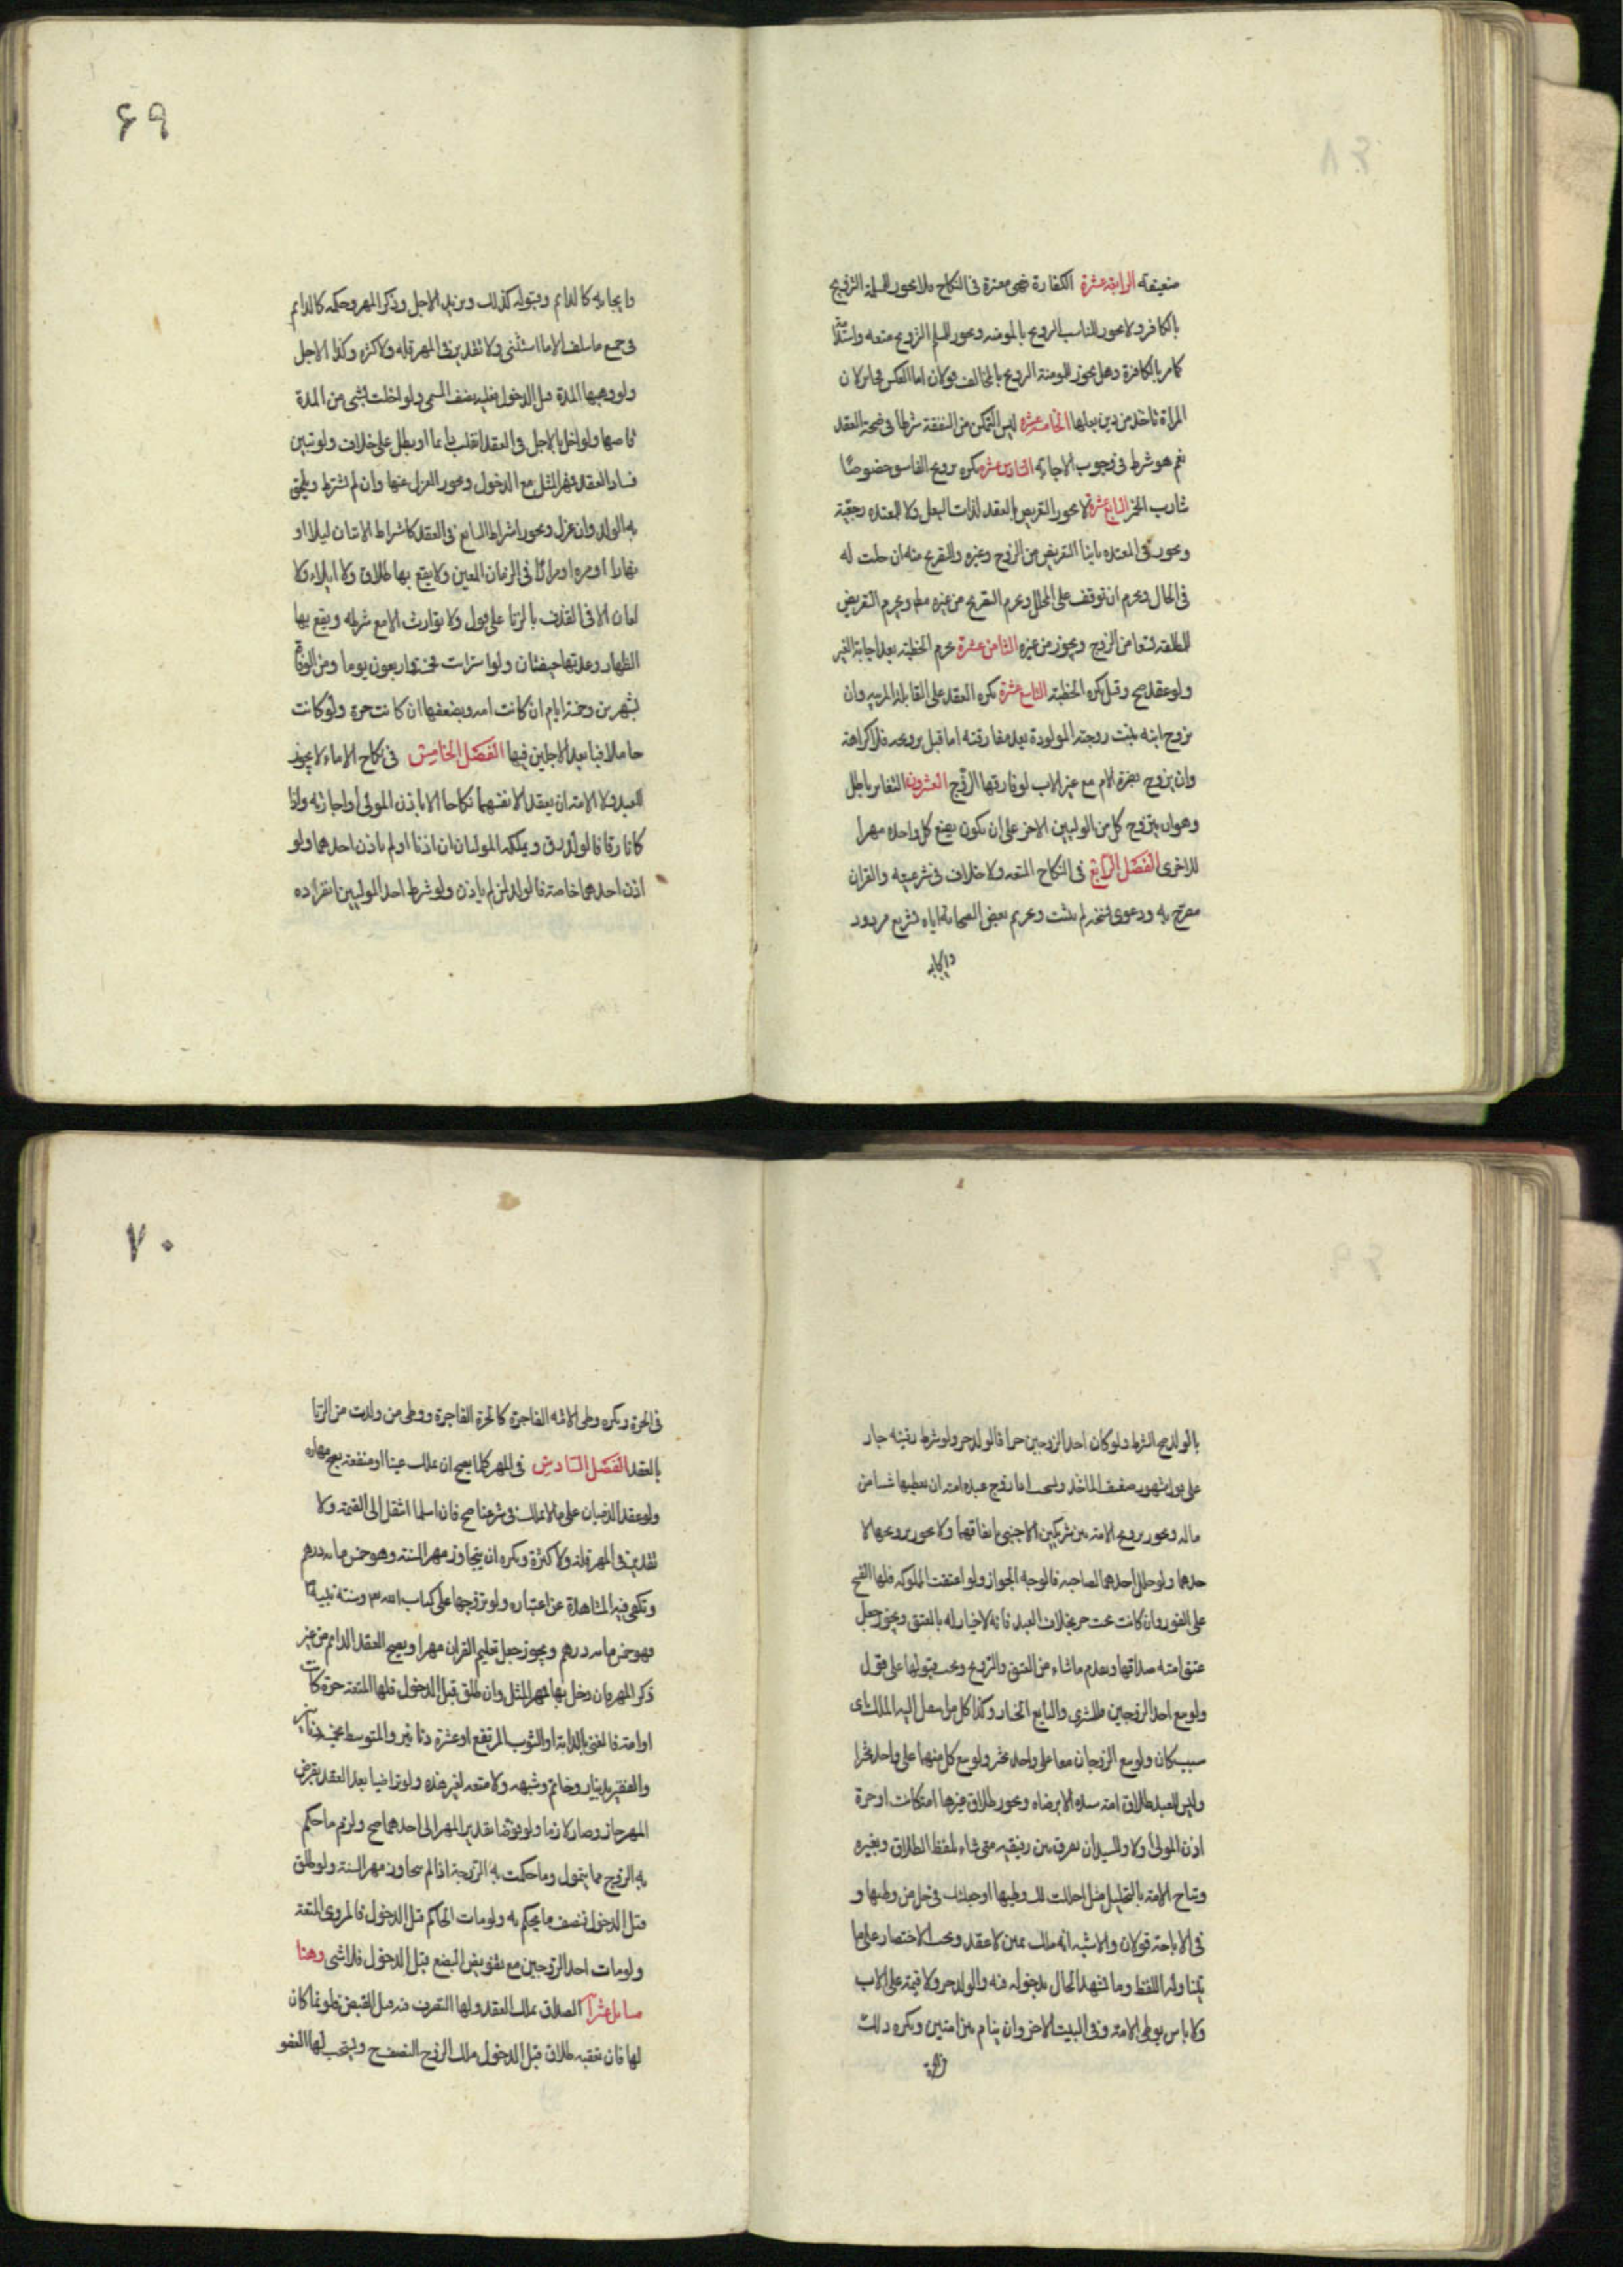 ضعيفة الرابعة عشرة الكفاءة هي معتبرة في النكاح فلا يجوز للمسلمة التزويج
بالكافر ولا يجوز للناصب التزويج بالمومنه ويجوز للمسلم التزويج متعه واستدامة
كما مر بالكافرة وهل يجوز للمومنة التزويج بالمخالف قولان اما العكس فجايز لان
المراة تاخذ من دين بعلها الخامسة عشره ليس التمكن من النفقة شرطا في صحة العقد
نعم هو شرط في وجوب الاجابه السادس عشره يكره تزويج الفاسق خصوصًا
شارب الخمر السابع عشرة لا يجوز التعريض بالعقد لذات البعل ولا للمعتده رجعية
ويجوز في المعتده باينا التعريض من الزوج وغيره والتصريح منه ان حلت له
في الحال ويحرم ان توقف على المحلل ويحرم التصريح من غيره مطلقا ويحرم التعريض
للمطلقه تسعا من الزوج ويجوز من غيره الثامن عشرة تحرم الخطبة بعد اجابة الغير
ولو عقد صح وقيل يكره الخطبة التاسع عشرة يكره العقد على القابلة المربيه وان
يزوج ابنه بنت زوجته المولودة بعد مفارقته اما قبل تزويجه فلا كراهة
وان يتزوج بضرة الام مع غير الاب لو فارقها الزوج العشرون الشغار باطل
وهو ان يتزوج كل من الوليين الاخر على ان يكون بضع كل واحده مهرا
للاخرى الفصل الرابع في النكاح المتعه ولا خلاف في شرعيته والقران
مصرح به ودعوى نسخه لم يثبت وتحريم بعض الصحابه اياه تشريع مردود
وايجابه
۶۹
وايجابه كالدايم وقبوله كذلك ويزيد الاجل وذكر المهر وحكمه كالدايم
في جميع ما سلف الا ما استثنى ولا تقدير في المهر قله ولا كثره وكذا الاجل
ولو وهبها المدة قبل الدخول فعليه نصف المسمى ولو اخلت بشي من المدة
قاصها ولو اخل بالاجل في العقد انقلب دايما او بطل على خلاف ولو تبين
فساد العقد فمهر المثل مع الدخول ويجوز العزل عنها وان لم تشترط ويلحق
به الولد وان عزل ويجوز اشتراط السايغ في العقد كاشتراط الاتيان ليلا او
نهارا او مره او مرارًا في الزمان المعين ولا يقع بها طلاق ولا ايلاء ولا
لعان الا في القذف بالزنا على قول ولا توارث الا مع شرطه ويقع بها
الظهار وعدتها حيضتان ولو استرابت فخمسة واربعون يوما ومن الوفاة
بشهرين وخمسة ايام ان كانت امه وبضعفها ان كانت حرة ولو كانت
حاملا فبابعد الاجلين فيها الفصل الخامس في نكاح الاماء لا يجوز
للعبد ولا الامة ان يعقد الانفسهما نكاحا الا باذن المولى او اجازته واذا
كانا رقا فالولد رق ويملكه الموليان ان اذنا او لم ياذن احدهما ولو
اذن احدهما خاصة فالولد لمن لم ياذن ولو شرط احد الموليين انفراده
بالولد صح الشرط ولو كان احد الزوجين حرا فالولد حر ولو شرط رقيته جاز
على قول مشهور ضعيف الماخذ ويستحب اذا زوج عبده امته ان يعطيها شيئا من
ماله ويجوز تزويج الامة بين شريكين لاجنبي باتفاقهما ولا يجوز تزويجها لا
حدهما ولو حلل احدهما لصاحبه فالوجه الجواز ولو اعتقت المملوكه فلها الفسخ
على الفور وان كانت تحت حر بخلاف العبد فانه لا خيار له بالعتق ويجوز جعل
عتق امته صداقها ويقدم ما شاء من العتق والتزويج ويجب قبولها على قول
ولو بيع احد الزوجين فللمشتري والبايع الخيار وكذا كل من انتقل اليه الملك باى
سبب كان ولو بيع الزوجان معا على واحد تخير ولو بيع كل منهما على واحد تخيرا
وليس للعبد طلاق امة سيده الا برضاه ويجوز طلاق غيرها امة كانت او حرة
اذن المولى او لا وللسيد ان يفرق بين رقيقيه متى شاء بلفظ الطلاق وبغيره
وتباح الامة بالتحليل مثل احللت لك وطيها او جعلتك في حل من وطيها و
في الاباحة قولان والاشبه انه ملك يمين لا عقد ويجب الاقتصار على ما
يتناوله اللفظ وما شهد الحال بدخوله فيه والولد حر ولا قيمة على الاب
ولا باس بوطى الامة وفي البيت الاخر وان ينام بين امتين ويكره ذلك
في الحرة
۷۰
في الحرة ويكره وطى الامة الفاجرة كالحرة الفاجرة ووطى من ولدت من الزنا
بالعقد الفصل السادس في المهر كلما يصح ان يملك عينا او منفعة يصح مهاره
ولو عقد الذميان على ما لا يملك في شرعنا صح فان اسلما انتقل الى القيمة ولا
تقدير في المهر قلة ولا كثرة ويكره ان يتجاوز مهر السنة وهو خمس مايه درهم
وتكفي فيه المشاهدة عن اعتباره ولو تزوجها على كتاب الله وسنة نبيه
فهو خمس مايه درهم ويجوز جعل تعليم القران مهرا ويصح العقد الدايم من غير
ذكر المهر فان دخل بها فمهر المثل وان طلق قبل الدخول فلها المتعة حرة كانت
او امة فالغني بالدابة او الثوب المرتفع او عشرة دنانير والمتوسط بخمسة دنانير
والفقير بدينار وخاتم وشبهه ولا متعه لغير هذه ولو تراضيا بعد العقد بفرض
المهر جاز وصار لازما ولو فوضا تقدير المهر الى احدهما صح ولزم ما حكم
به الزوج مما يتمول وما حكمت به الزوجة اذا لم يتجاوز مهر السنة ولو طلق
قبل الدخول فنصف ما يحكم به ولو مات الحاكم قبل الدخول فالمروى المتعة
ولو مات احد الزوجين مع تفويض البضع قبل الدخول فلا شى وهنا
مسايل عشرا الصداق يملك العقد ولها التصرف فيه قبل القبض فلو نما كان
لها فان تعقبه طلاق قبل الدخول ملك الزوج النصف ح ويستحب لها العفو